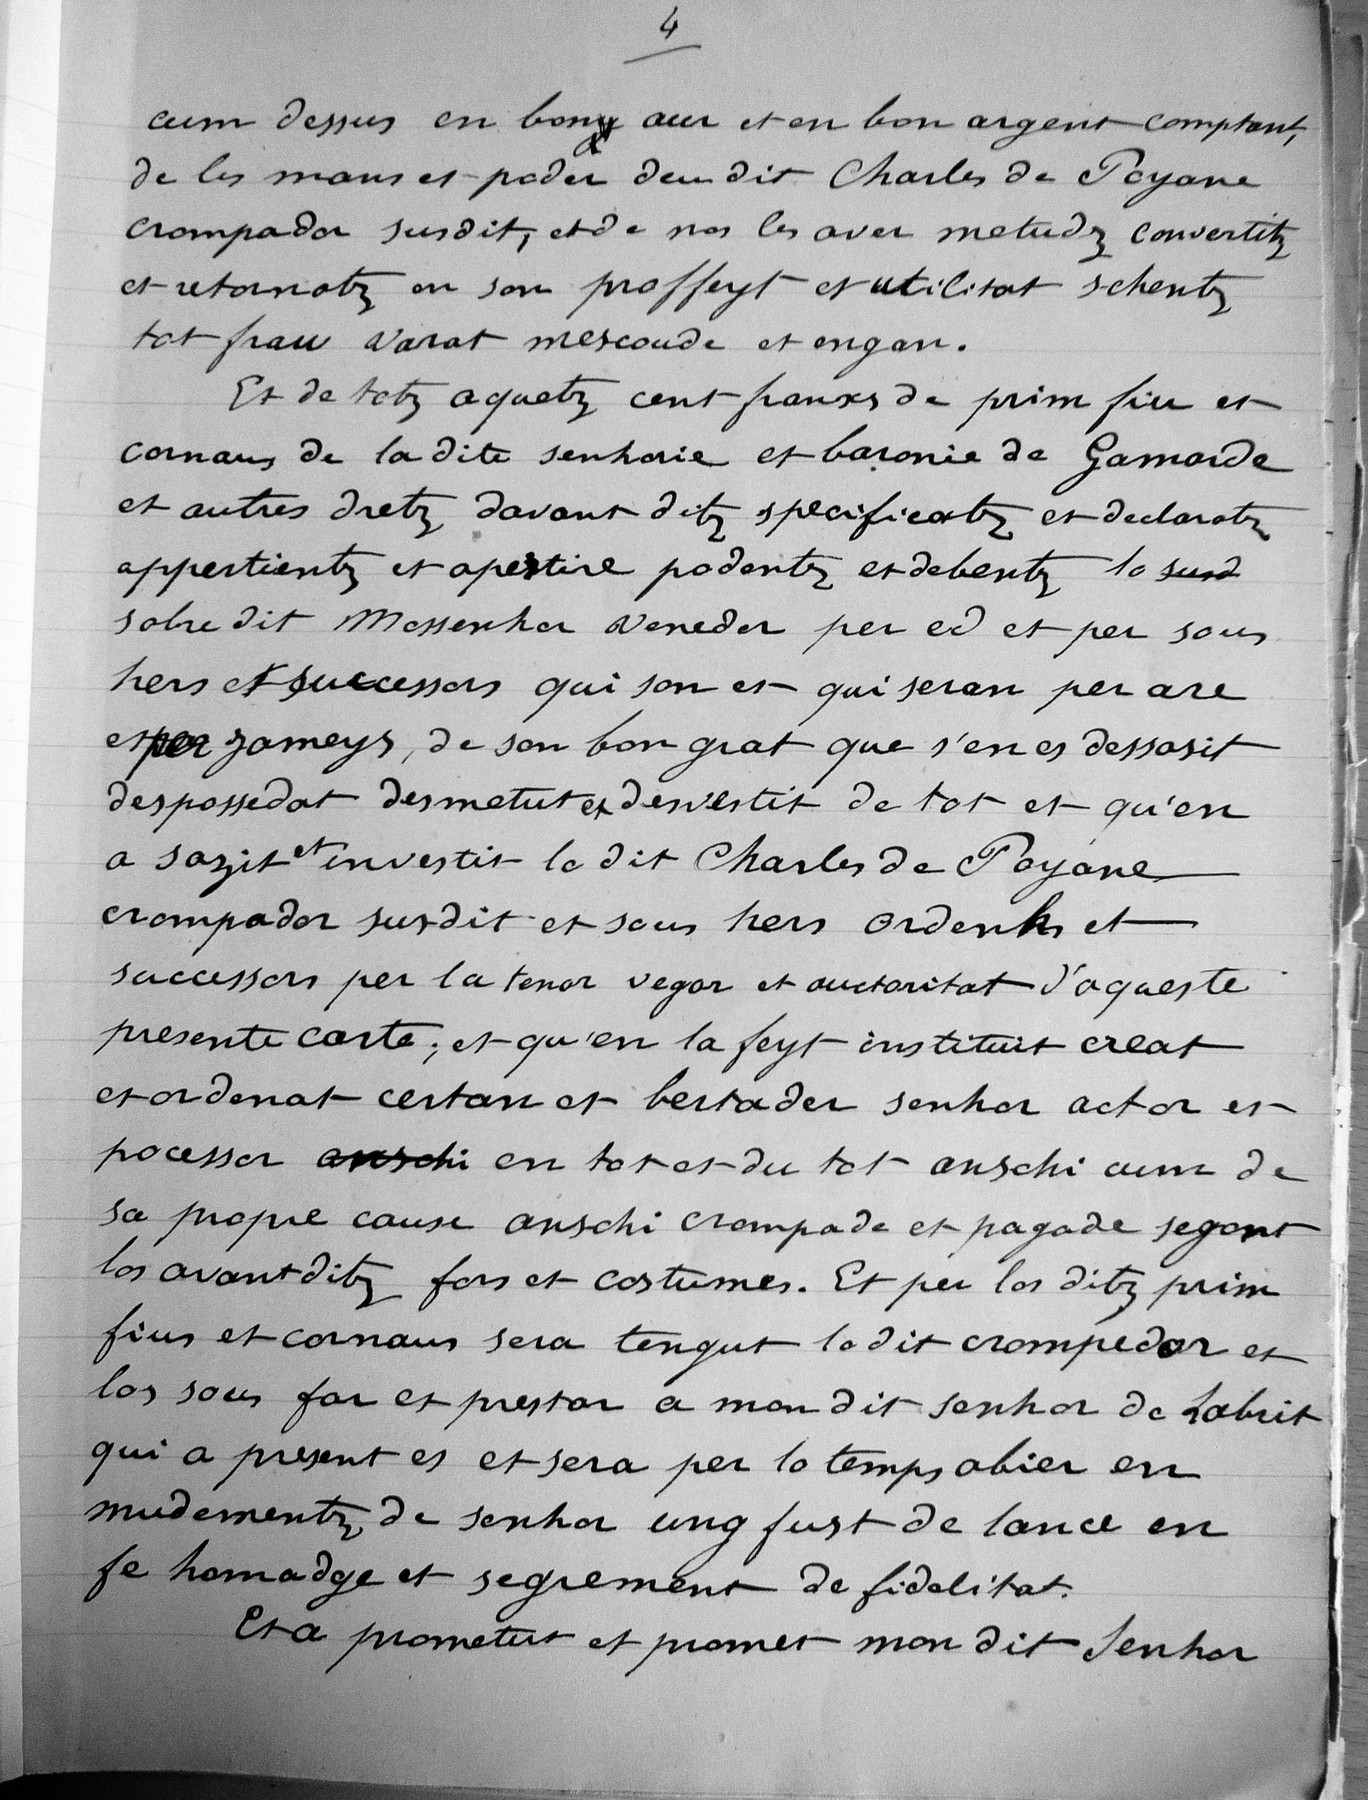 4
cum dessus en bon aur et en bon argent comptant,
de les mans et poder deu dit Charles de Poyane
crompador susdit, et de nos les aver metudz convertitz
et retornatz en son proffeyt et utilitat schentz
tot frau varat mescoude et engan.
Et de totz aquetz cent franxs de prim fiu et
cornaus de la dite senhorie et baronie de Gamarde
et autres dretz davant ditz specificatz et declaratz
appertientz et apertire podentz et debentz lo susd
sobre dit Mossenhor Veneder per ed et per sous
hers et successors qui son et qui seran per are
et per jameys, de son bon grat que s'en es dessasit
despossedat desmetut et desvestit de tot et qu'en
a sazit et investit lo dit Charles de Poyane
crompador susdit et sous hers ordenhs et
successors per la tenor vegor et auctoritat d'aqueste
presente carte; et qu'en la feyt instituit creat
et ordenat certan et bertader senhor actor et
pocessor anschi en tot et du tot anschi cum de
sa propre cause anschi crompade et pagade segont
los avant ditz fors et costumes. Et per los ditz prim
fius et cornaus sera tengut lo dit crompedor et
los sous far et prestar a mon dit senhor de Labrit
qui a present es et sera per lo temps abier en
mudementz de senhor ung fust de lance en
fe homadge et segrement de fidelitat.
Et a prometut et promet mon dit Senhor